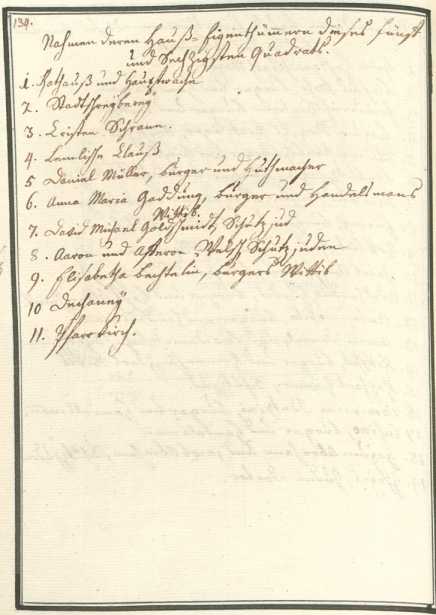 134.
Nahmen deren Hauß-Eigenthümmern dieses fünft
und Sechzigsten Quadrats.
1. Rathauß und Hauptwache
2. Stadtschreyberey
3. Schrann.
4. Clauß
5 Daniel Müller, bürger und Huthmacher
6. Anna Maria Gaddung, bürger und Handelsmans
Wittib.
7. David Michael Goldschmidt, Schutzjud
8. Aaron und Welsch Schutzjuden
9. Elisabetha bechtelin, bürgers Wittib
10 Dechaney
11. Pfarrkirch.